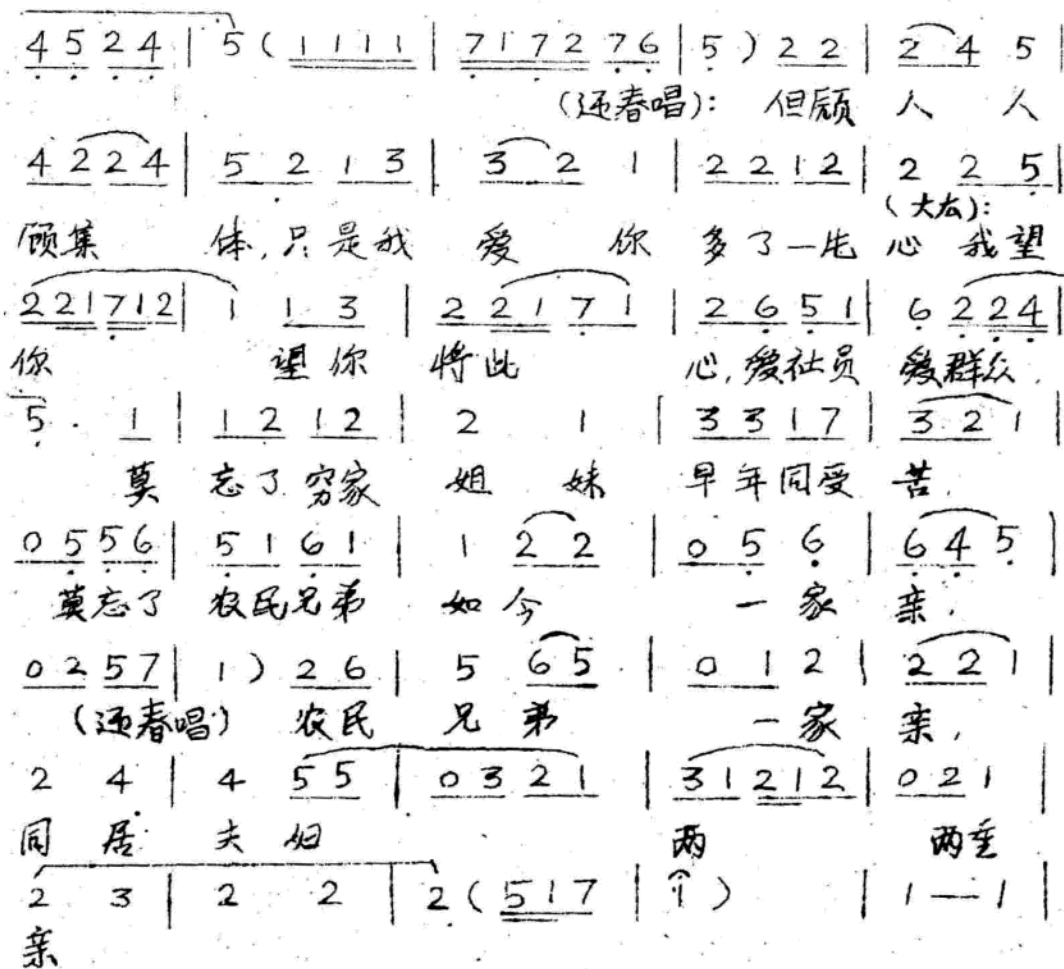 4 5 2 4 | 5 ( 1 1 1 1 | 7 1 7 2 7 6 | 5 ) 2 2 | 2 4 5 |
(迎春唱): 但愿 人 人
4 2 2 4 | 5 2 1 3 | 3 2 1 | 2 2 1 2 | 2 2 5 |
顾集 体, 只是我 爱 你 多了一片 心 (大友): 我望
2 2 1 7 1 2 | 1 1 3 | 2 2 1 7 1 | 2 6 5 1 | 6 2 2 4 |
你 望你 将此 心, 爱社员 爱群众,
5 . 1 | 1 2 1 2 | 2 1 | 3 3 1 7 | 3 2 1 |
莫 忘了穷家 姐 妹 早年同受 苦,
0 5 5 6 | 5 1 6 1 | 1 2 2 | 0 5 6 | 6 4 5 |
莫忘了 农民兄弟 如今 一家 亲,
0 2 5 7 | 1 ) 2 6 | 5 6 5 | 0 1 2 | 2 2 1 |
(迎春唱) 农民 兄 弟 一家 亲,
2 4 | 4 5 5 | 0 3 2 1 | 3 1 2 1 2 | 0 2 1 |
同 居 夫 妇 两 两重
2 3 | 2 2 | 2 ( 5 1 7 | 1 ) | 1 — 1 |
亲